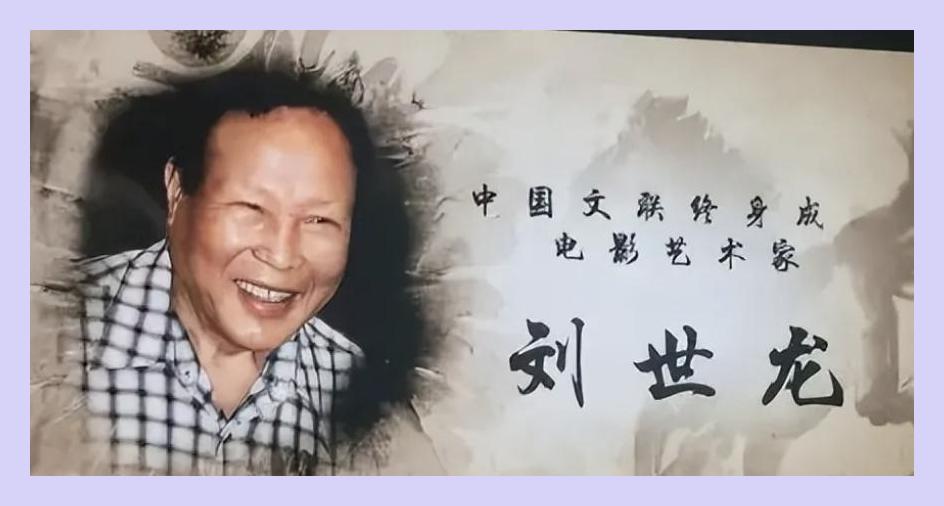 中国文联终身成
电影艺术家
刘世龙